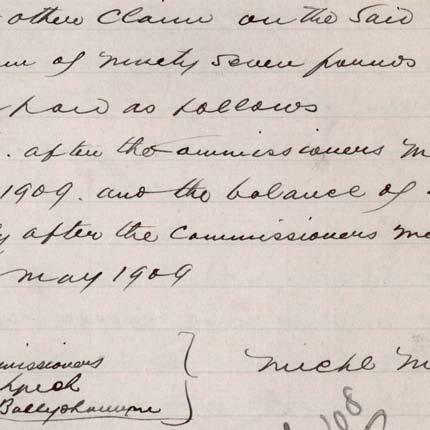 other Claim on the Said
of Ninety Seven pounds
paid as follows
after the Commissioners M
1909. and the balance of
after the Commissioners Me
May 1909
missioners
Michl M